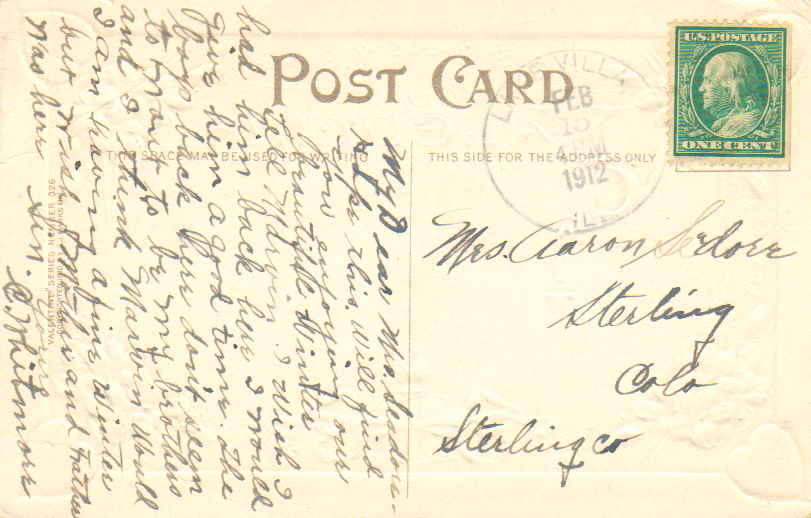 POST CARD
U.S. POSTAGE
ONE CENT
FEB
15
4 PM
1912
ILL
THIS SPACE MAY BE USED FOR WRITING
THIS SIDE FOR THE ADDRESS ONLY
My Dear Mrs
Hope this will find
you enjoying our
beautiful Winter
tell Marvin I wish I
had him back here I would
give him a good time. the
boys back here don't seem
to want to be my brothers
and I think Marvin would
I am having a fine Winter
but Wish Mother and Father
Was here Sin. Yours
C. Whitmore
Mrs. Aaron
Sterling
Colo
Sterling co
VALENTINE SERIES NUMBER 326